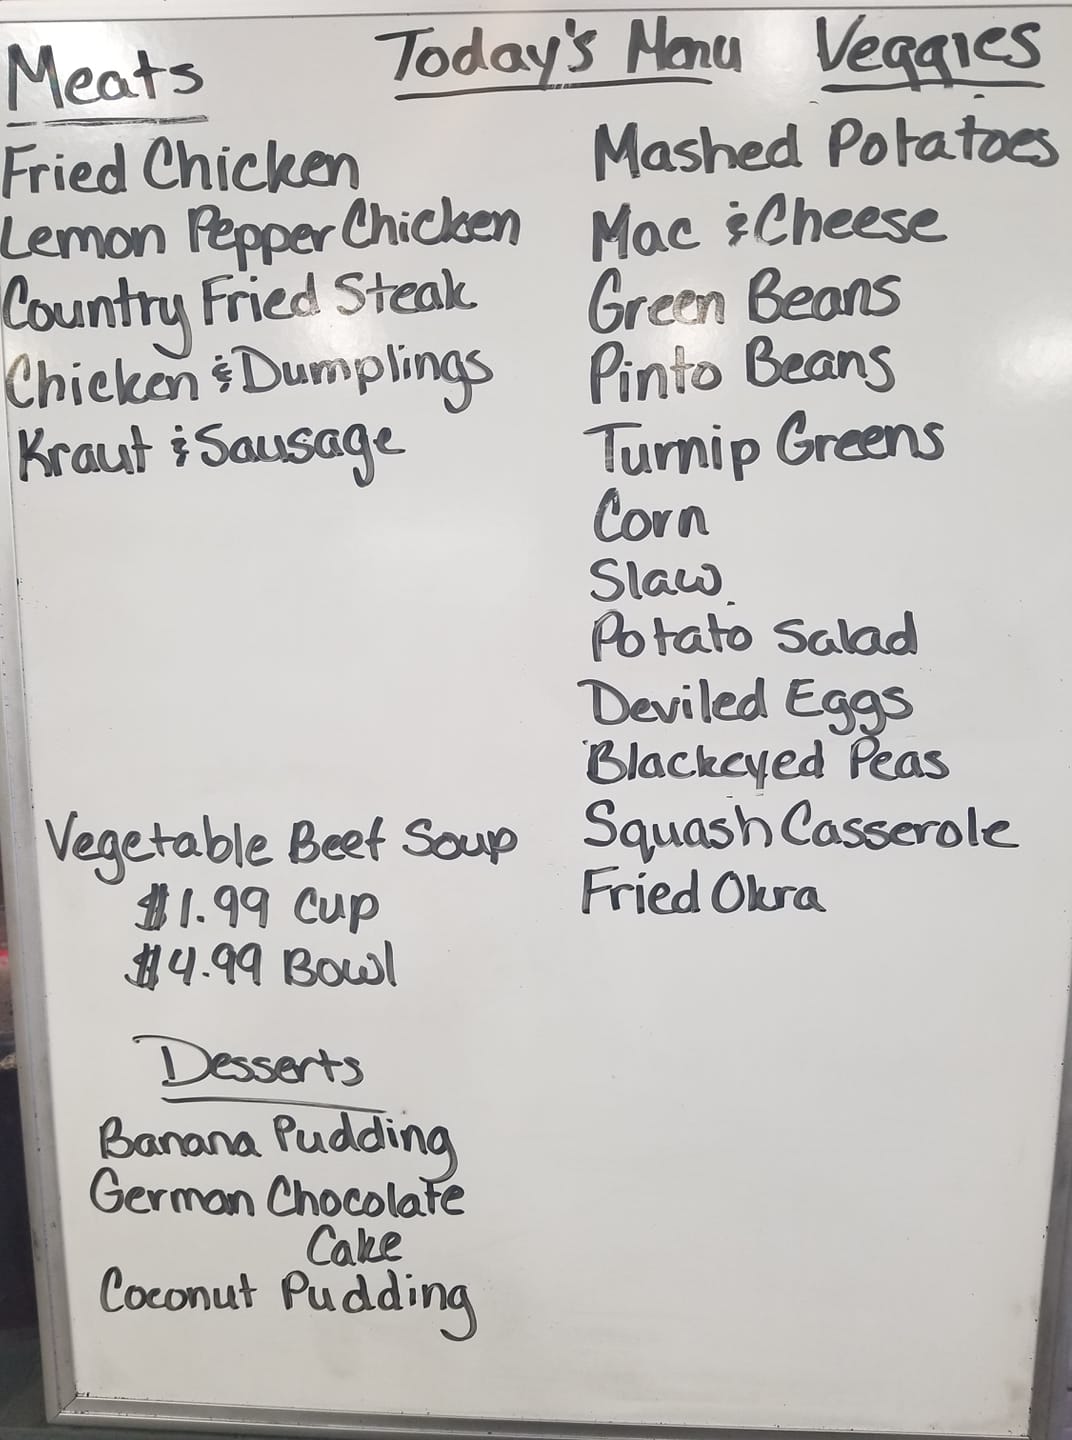 Today's Menu
Meats
Fried Chicken
Lemon Pepper Chicken
Country Fried Steak
Chicken & Dumplings
Kraut & Sausage
Vegetable Beef Soup
$1.99 Cup
$4.99 Bowl
Desserts
Banana Pudding
German Chocolate
Cake
Coconut Pudding
Veggies
Mashed Potatoes
Mac & Cheese
Green Beans
Pinto Beans
Turnip Greens
Corn
Slaw
Potato Salad
Deviled Eggs
Blackeyed Peas
Squash Casserole
Fried Okra